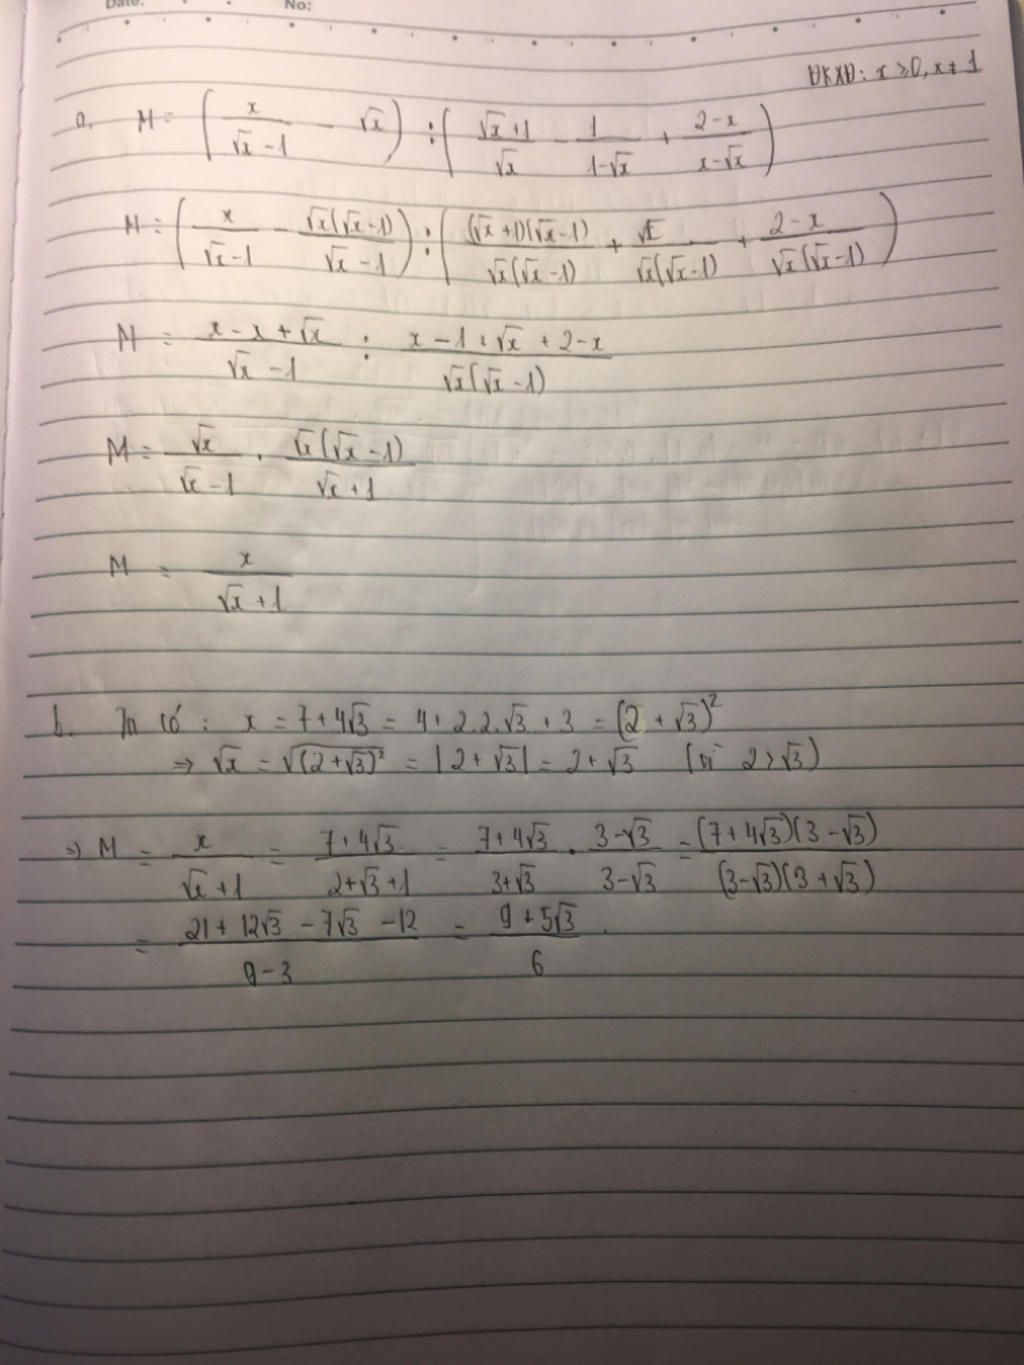 Date: No:
ĐKXĐ: x ≥ 0, x ≠ 1
a. M = (x/(√x - 1) - √x) : ((√x + 1)/√x - 1/(1 - √x) + (2 - x)/(x - √x))
M = (x/(√x - 1) - √x(√x - 1)/(√x - 1)) : ((√x + 1)(√x - 1)/(√x(√x - 1)) + √x/(√x(√x - 1)) + (2 - x)/(√x(√x - 1)))
M = (x - x + √x)/(√x - 1) : (x - 1 + √x + 2 - x)/(√x(√x - 1))
M = √x/(√x - 1) . √x(√x - 1)/(√x + 1)
M = x/(√x + 1)
b. Ta có : x = 7 + 4√3 = 4 + 2.2.√3 + 3 = (2 + √3)²
⇒ √x = √(2 + √3)² = |2 + √3| = 2 + √3 (vì 2 > √3)
⇒ M = x/(√x + 1) = (7 + 4√3)/(2 + √3 + 1) = (7 + 4√3)/(3 + √3) . (3 - √3)/(3 - √3) = (7 + 4√3)(3 - √3)/((3 - √3)(3 + √3))
= (21 + 12√3 - 7√3 - 12)/(9 - 3) = (9 + 5√3)/6 .